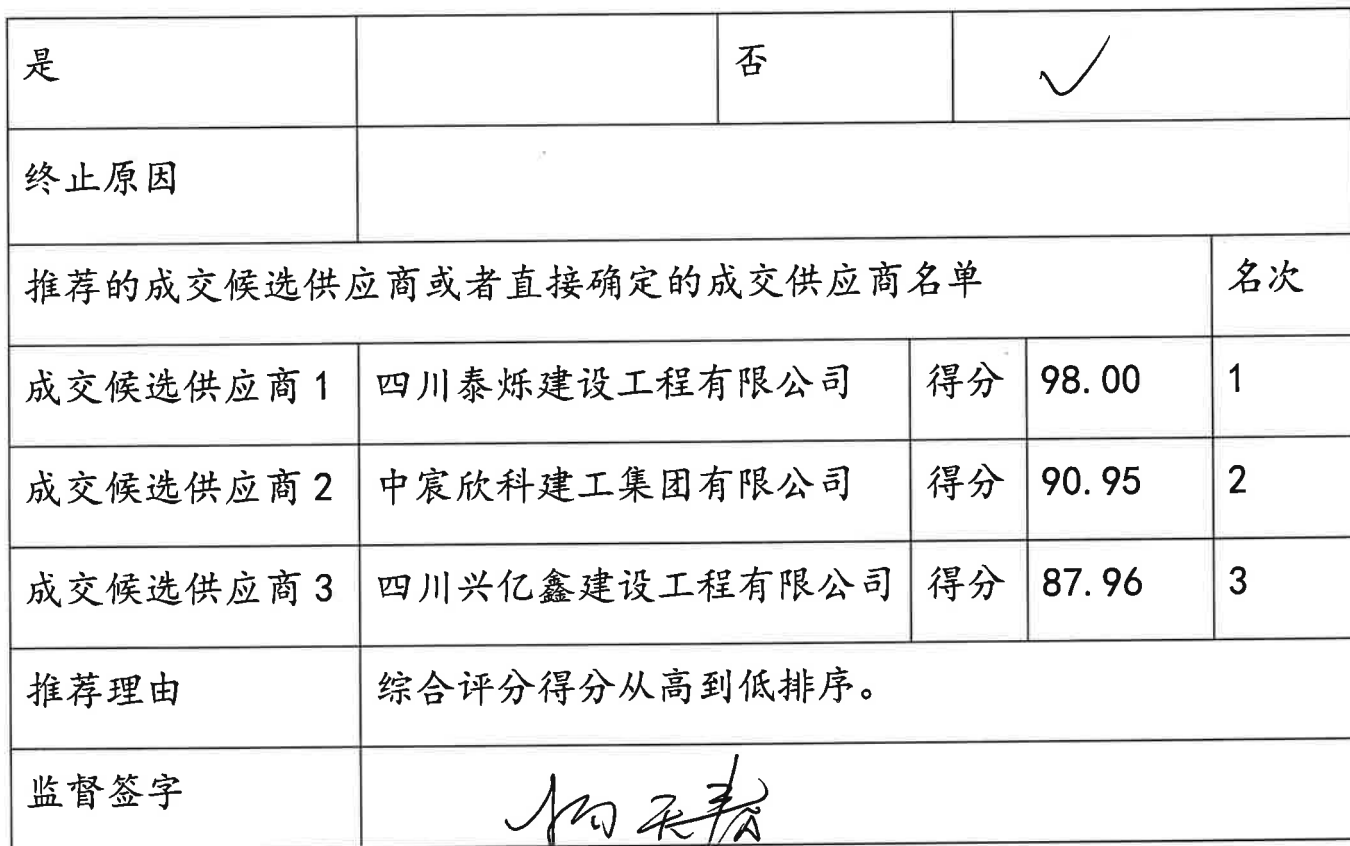 是 否 ✓
终止原因
推荐的成交候选供应商或者直接确定的成交供应商名单 名次
成交候选供应商1 四川泰烁建设工程有限公司 得分 98.00 1
成交候选供应商2 中宸欣科建工集团有限公司 得分 90.95 2
成交候选供应商3 四川兴亿鑫建设工程有限公司 得分 87.96 3
推荐理由 综合评分得分从高到低排序。
监督签字